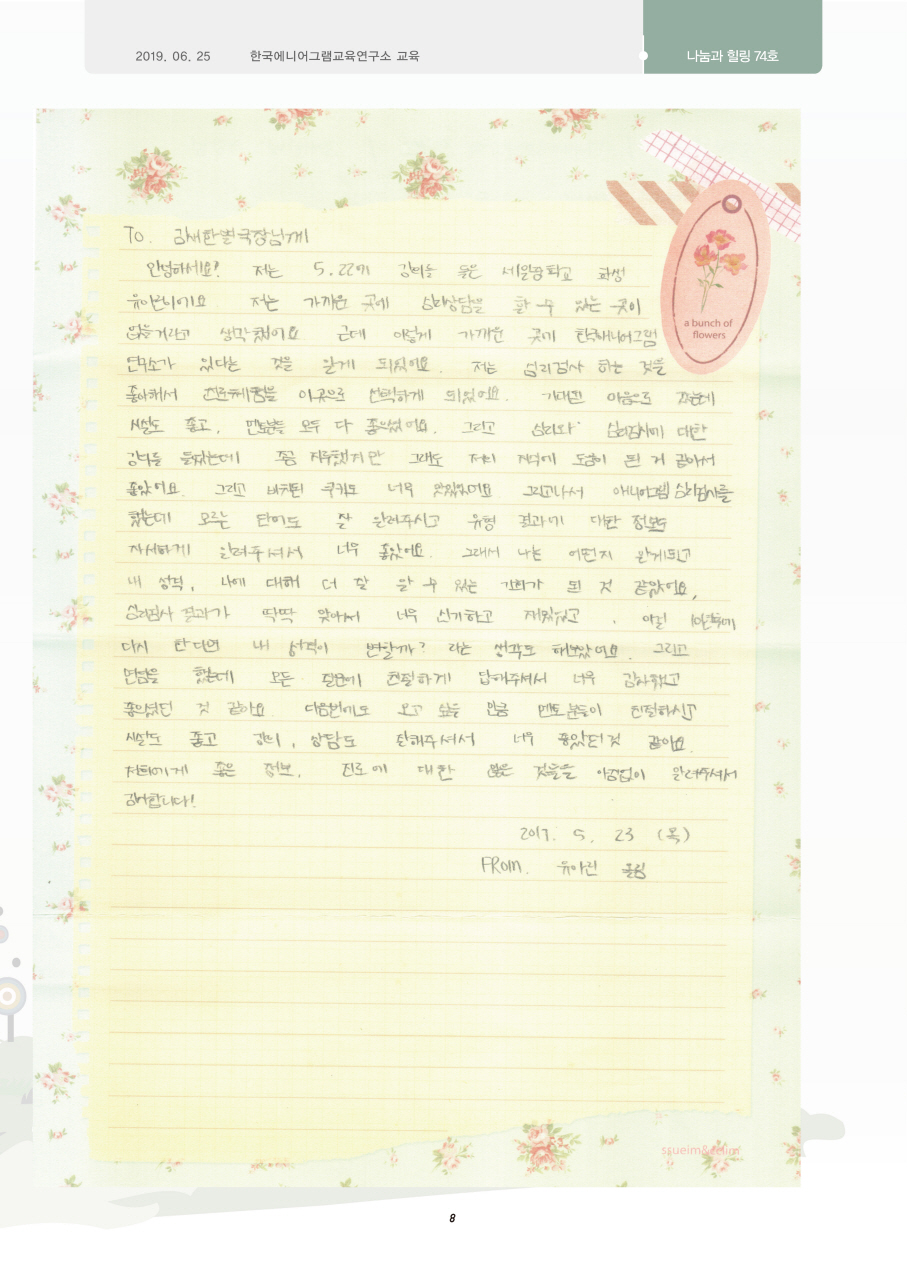 2019. 06. 25 한국에니어그램교육연구소 교육
나눔과 힐링 74호
a bunch of
flowers
To. 김새한별국장님께
안녕하세요? 저는 5.22에 강의를 들은 세일중학교 학생
저는 가까운 곳에 심리상담을 할 수 있는 곳이
없을거라고 생각했어요 근데 이렇게 가까운 곳에
연구소가 있다는 것을 알게 되었어요. 저는 심리검사 하는 것을
좋아해서 진로체험을 이곳으로 선택하게 되었어요. 기대된 마음으로 갔는데
시설도 좋고, 멘토분들 모두 다 좋으셨어요. 그리고 심리와 심리검사에 대한
강의를 들었는데 쫌 지루했지만 그래도 저희 지식에 도움이 된 거 같아서
좋았어요. 그리고 배치된 쿠키도 너무 맛있었어요 그리고나서 애니어그램 심리검사를
했는데 모르는 단어도 잘 알려주시고 유형 결과에 대한 정보도
자세하게 알려주셔서 너무 좋았어요. 그래서 나는 어떤지 알게되고
내 성격, 나에 대해 더 잘 알 수 있는 기회가 된 것 같았어요,
심리검사 결과가 딱딱 맞아서 너무 신기하고 재밌었고 .
다시 한다면 내 성격이 변할까? 라는 생각도 해보았어요. 그리고
면담을 했는데 모든 질문에 친절하게 답해주셔서 너무 감사했고
좋으셨던 것 같아요. 다음번에도 오고 싶을 만큼 멘토분들이 친절하시고
시설도 좋고 강의, 상담도 잘해주셔서 너무 좋았던것 같아요.
저희에게 좋은 정보, 진로에 대한 많은 것들을 아낌없이 알려주셔서
감사합니다!
2019. 5. 23 (목)
FROM. 유아린 올림
8